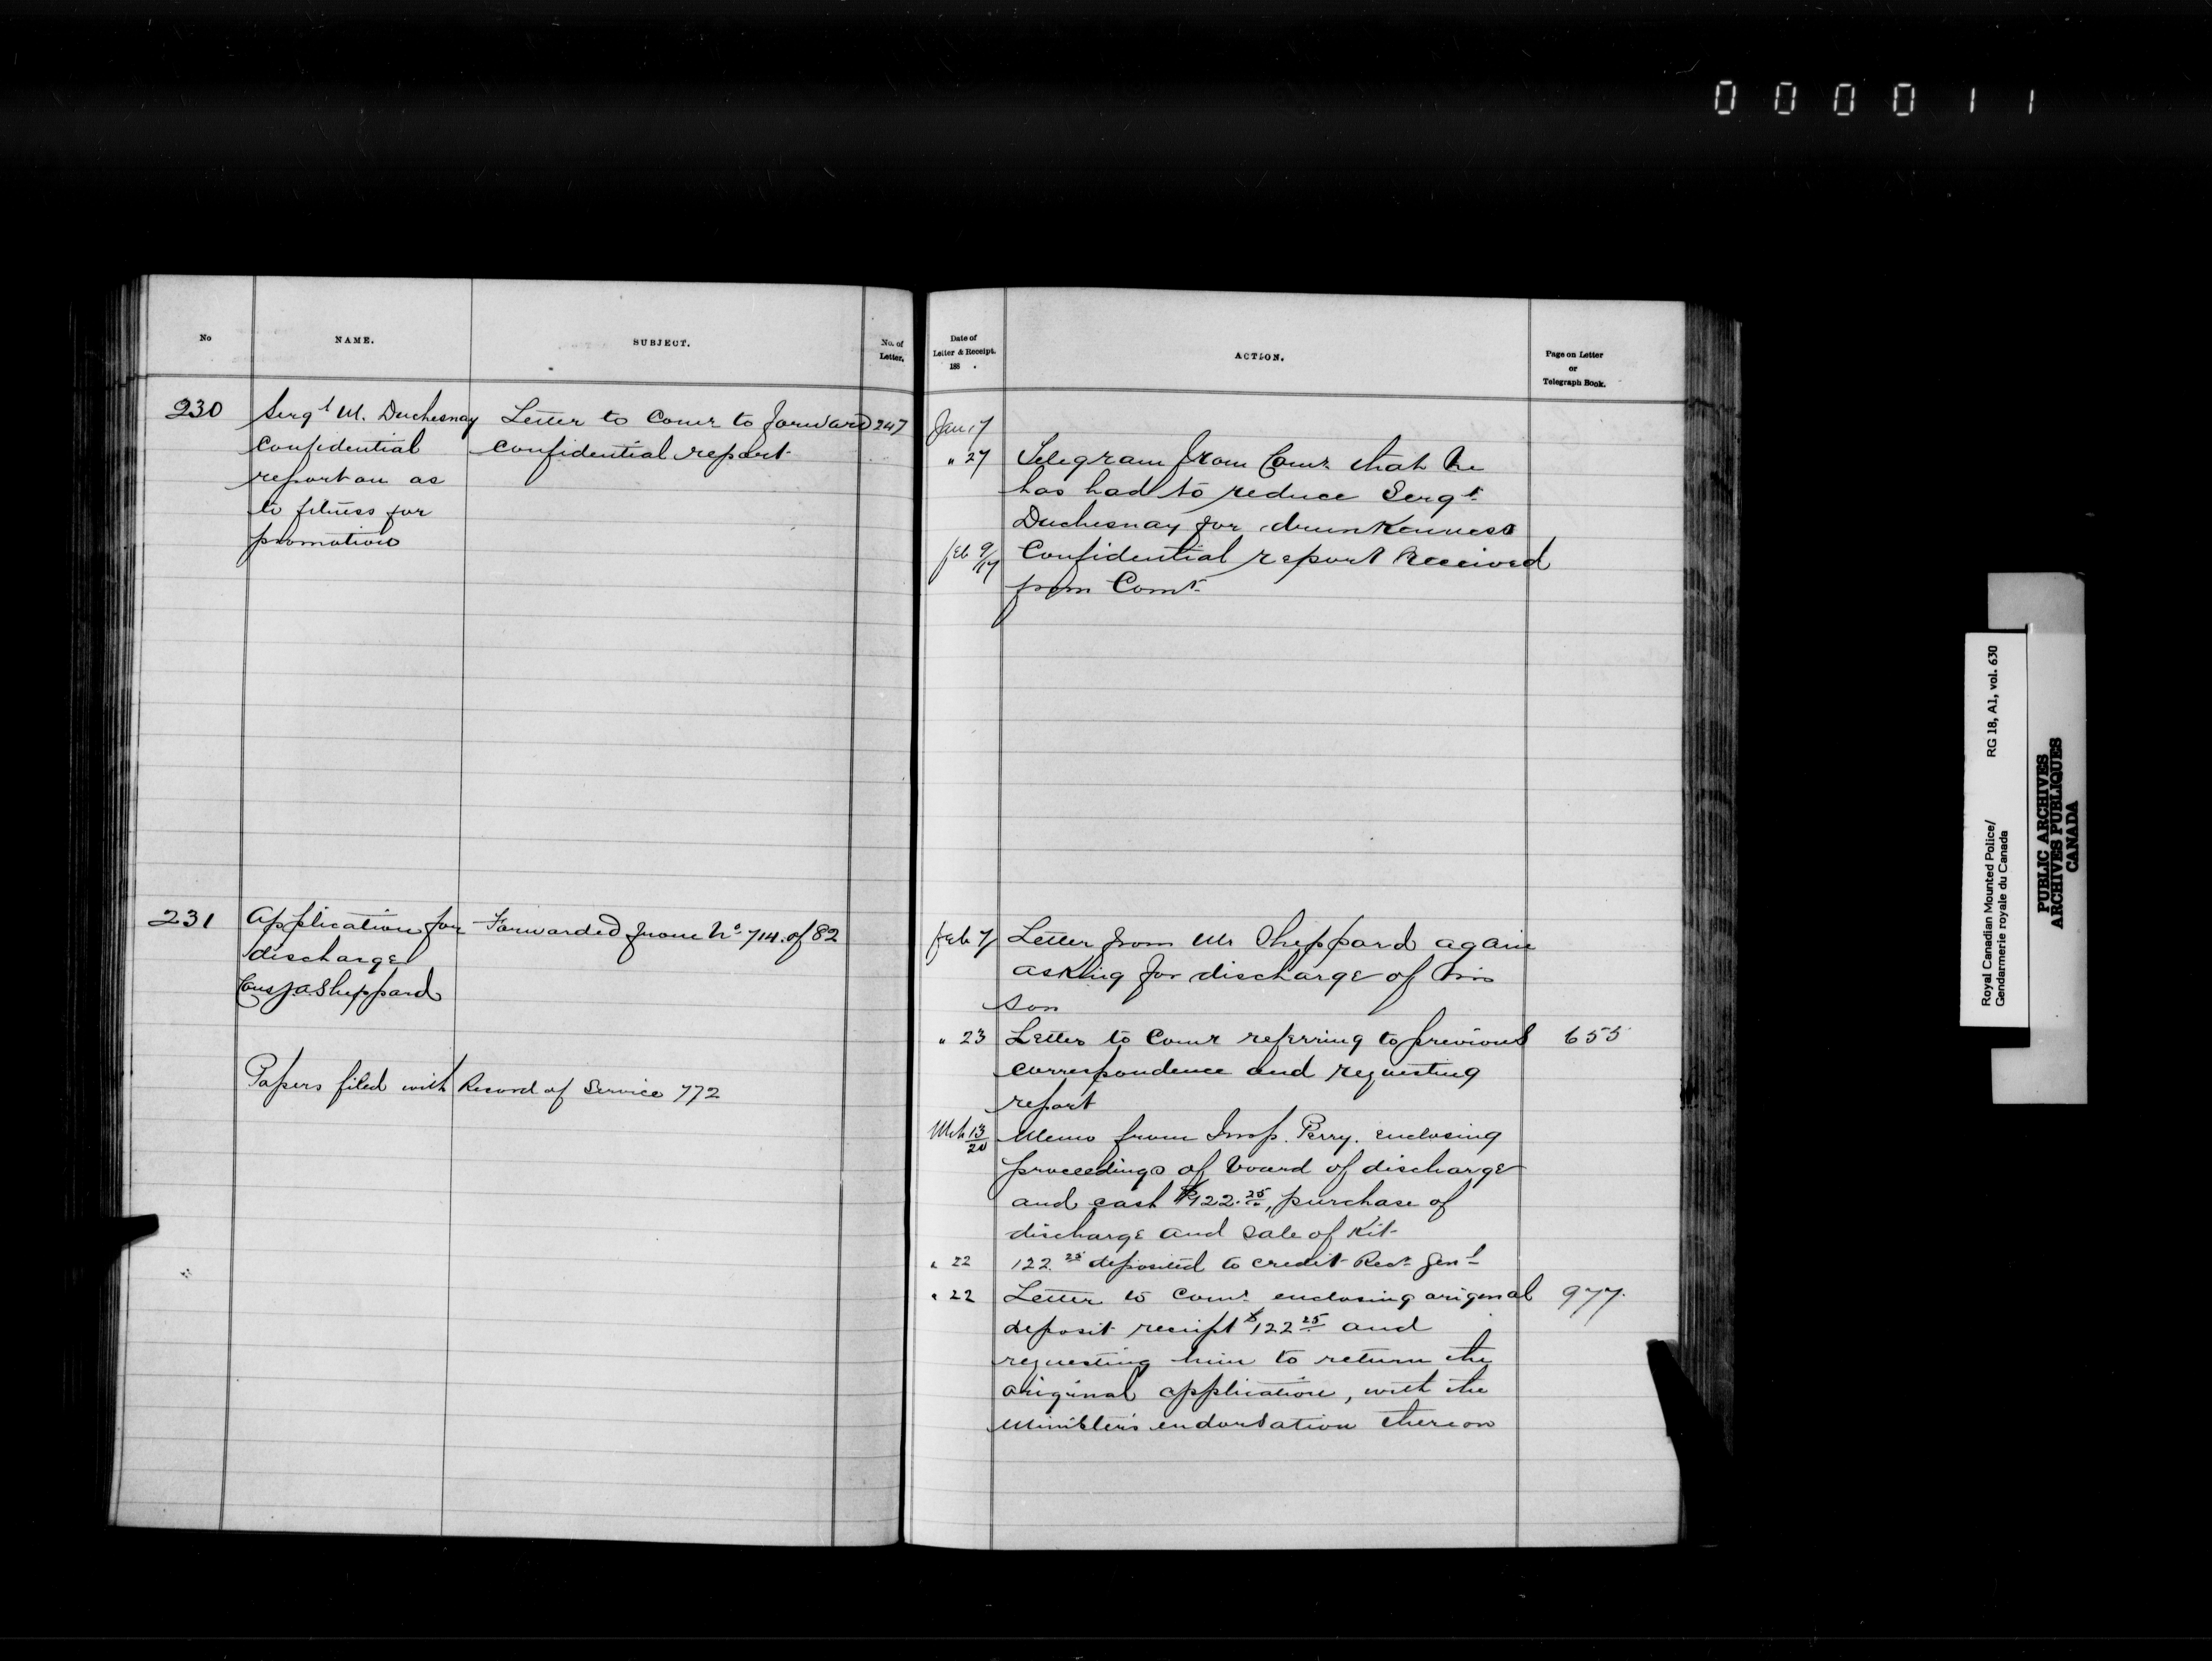 0 0 0 0 1 1
No
NAME.
SUBJECT.
No. of
Letter.
230
Sergt M. Duchesnay
confidential
report on as
to fitness for
promotion
Letter to Comr to forward
confidential report
247
231
Application for
discharge
Cons J A Sheppard
Forwarded from No 714 of 82
Papers filed with Record of Service 772
Date of
Letter & Receipt.
188 .
ACTION.
Page on Letter
or
Telegraph Book.
Jan 17
" 27 Telegram from Comr that he
has had to reduce Sergt
Duchesnay for drunkenness
Feb 9/17 Confidential report received
from Comr
Feb 7/ Letter from Mr Sheppard again
asking for discharge of his
son
" 23 Letter to Comr referring to previous 655
correspondence and requesting
report
Mch 13/20 Memo from Insp. Perry. enclosing
proceedings of board of discharge
and cash $122.25, purchase of
discharge and sale of Kit
" 22 122.25 deposited to credit Recr Genl
" 22 Letter to Comr enclosing origenal 977.
deposit receipt $122 25 and
requesting him to return the
original application, with the
Minister's endorsation thereon
Royal Canadian Mounted Police/
Gendarmerie royale du Canada
RG 18, A1, vol. 630
PUBLIC ARCHIVES
ARCHIVES PUBLIQUES
CANADA